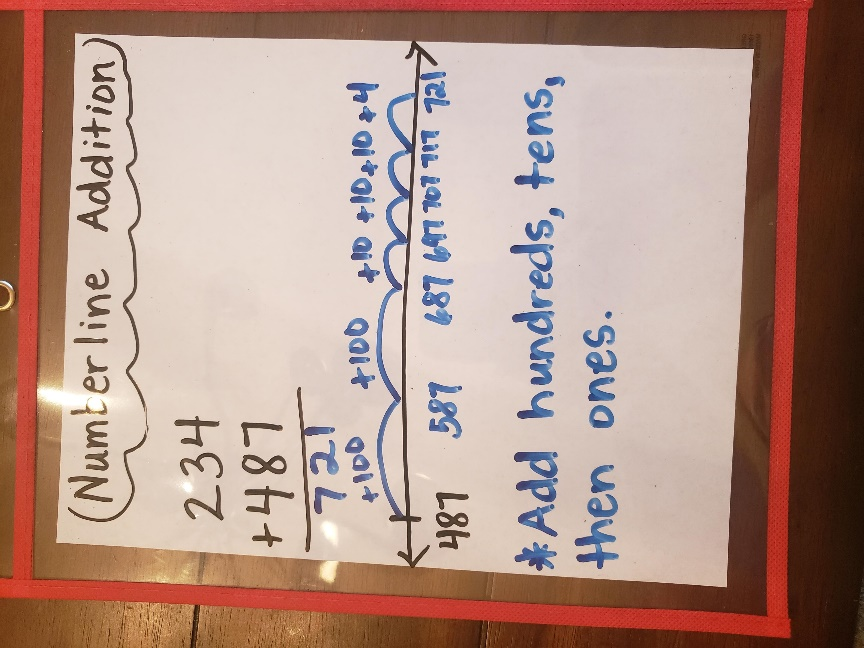 Number line Addition
234
+487
721
+100 +100 +10 +10 +10 +4
487 587 687 697 707 717 721
*Add hundreds, tens,
then ones.